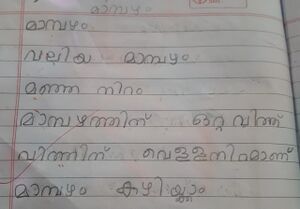 മാമ്പഴം
മാമ്പഴം
വലിയ മാമ്പഴം
മഞ്ഞ നിറം
മാമ്പഴത്തിന് ഒറ്റ വിത്ത്
വിത്തിന് വെള്ളനിറമാണ്
മാമ്പഴം കഴിയ്ക്കാം